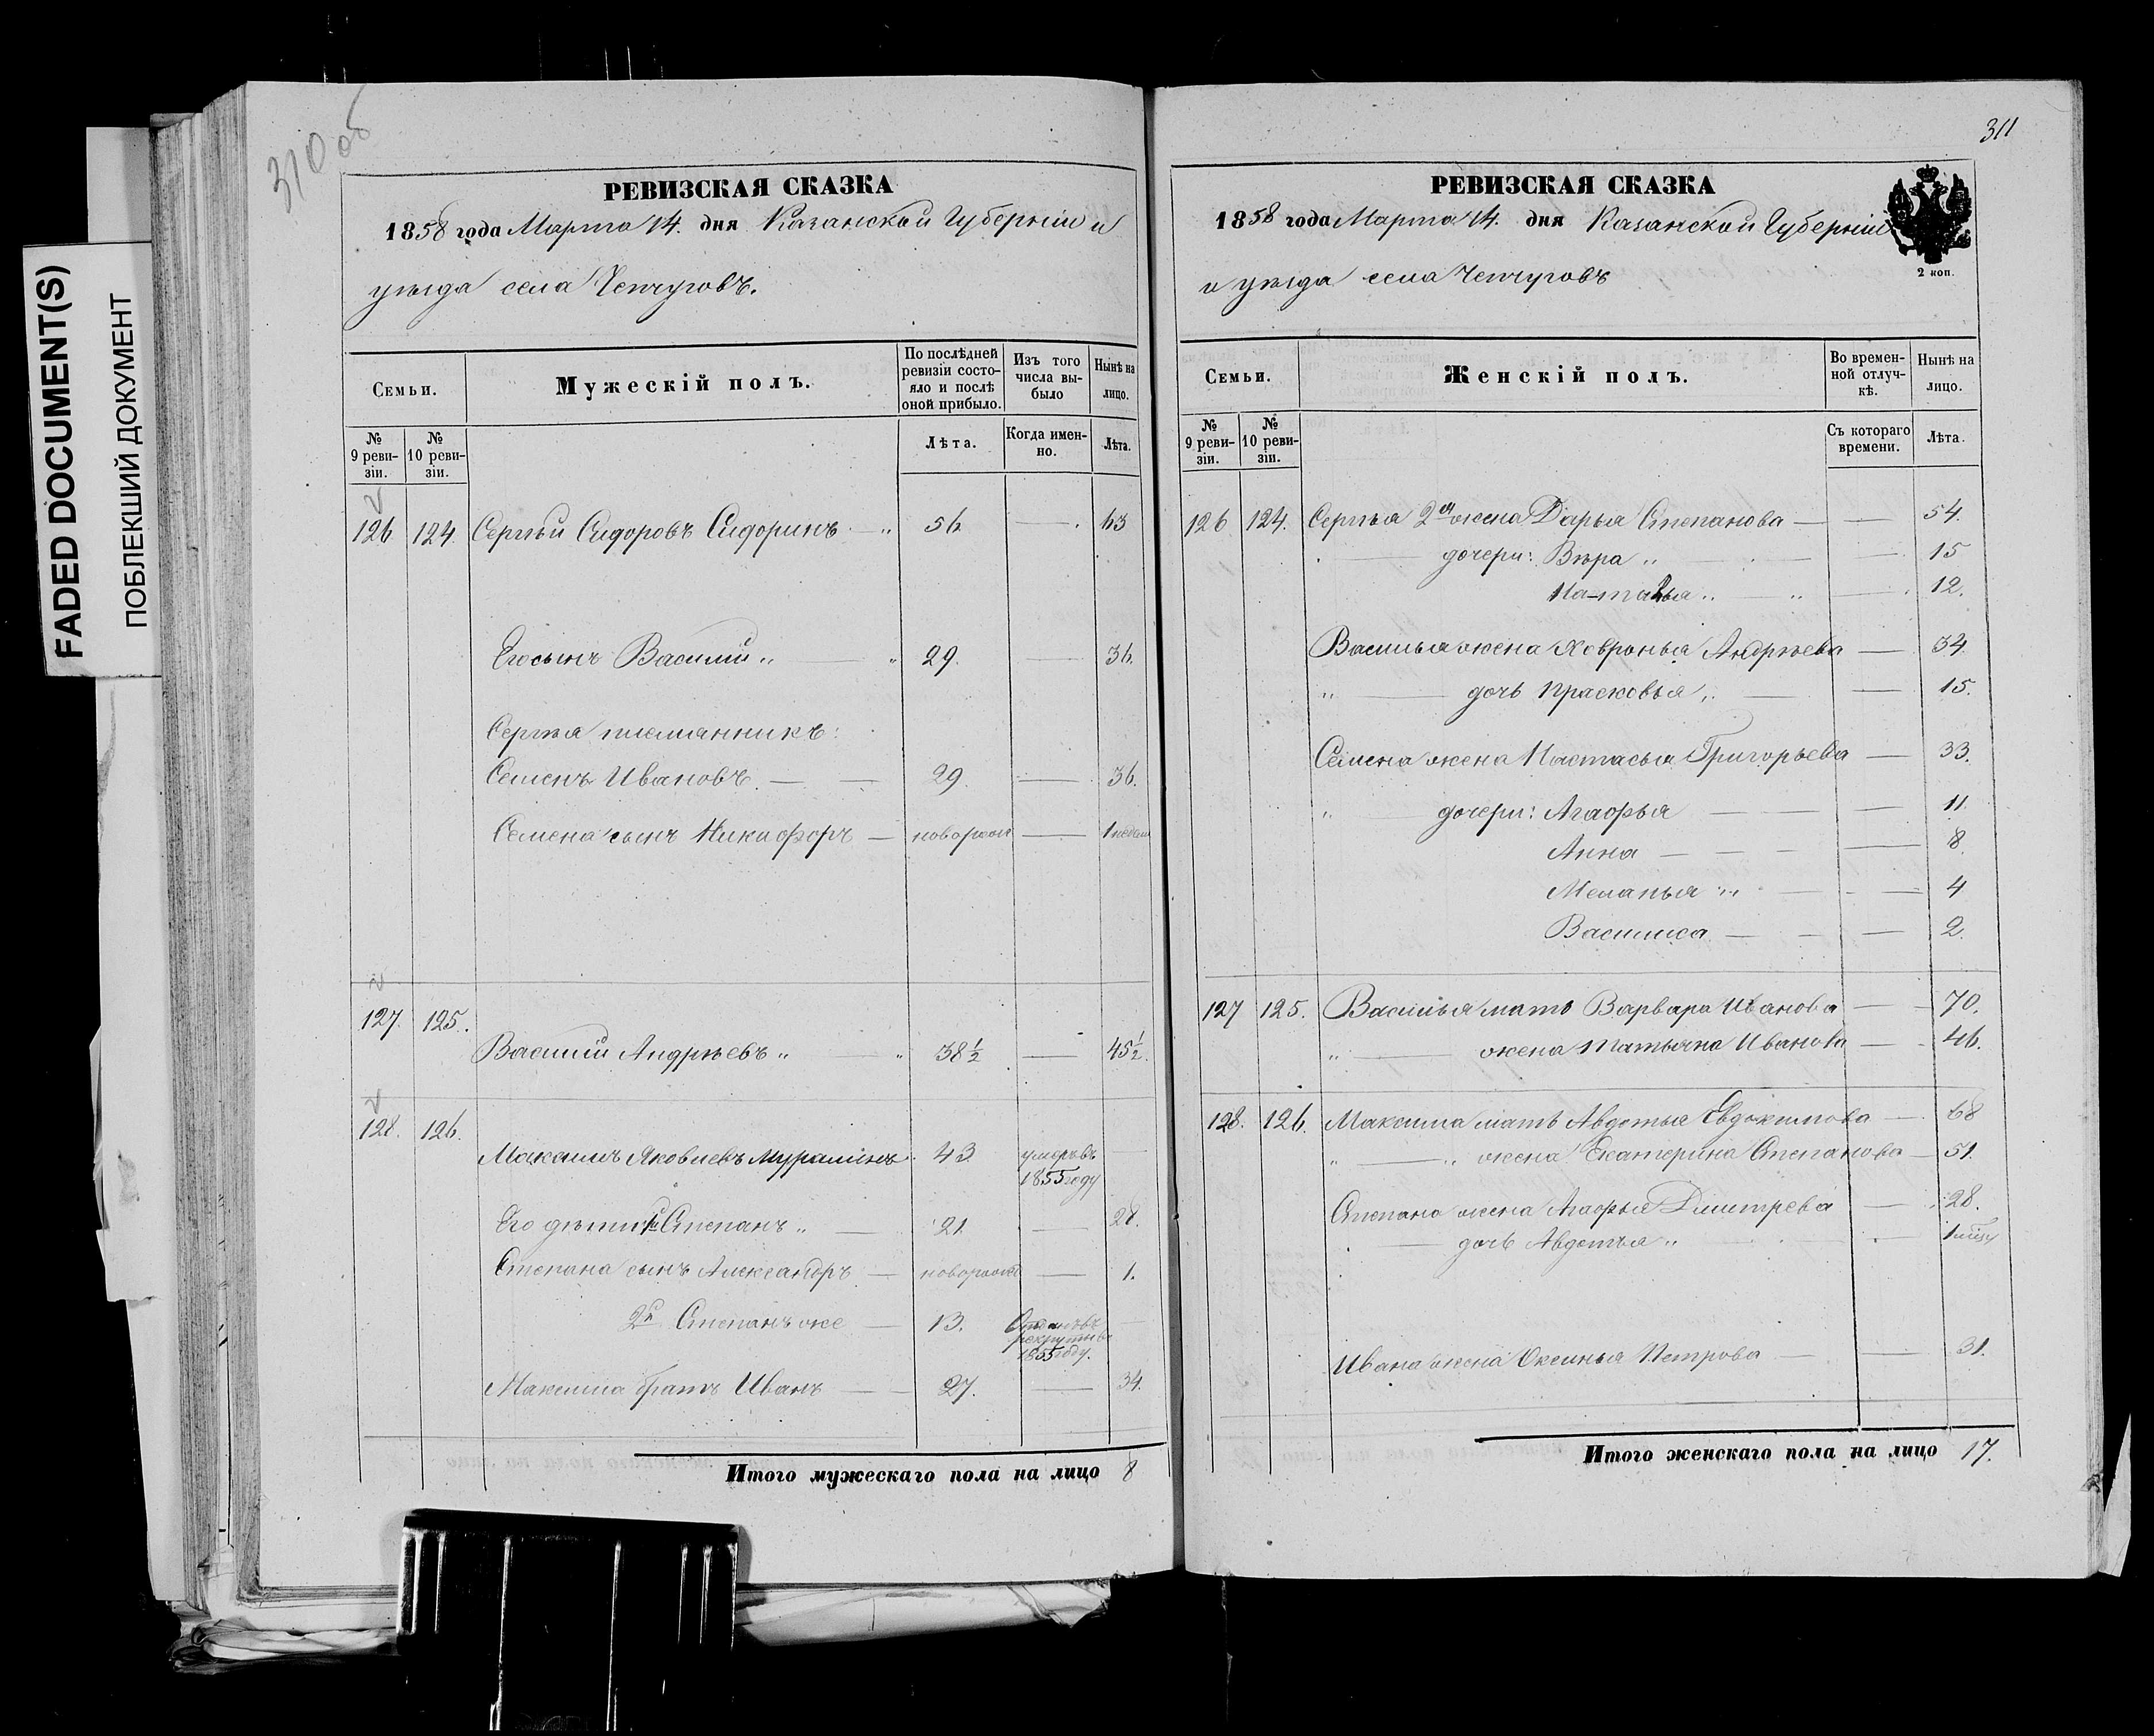 FADED DOCUMENT(S)
ПОБЛЕКШИЙ ДОКУМЕНТ
310 об
РЕВИЗСКАЯ СКАЗКА
1858 года Марта 14. дня Казанской Губерніи и
уѣзда села Чепчуговъ.
Семьи.
Мужескій полъ.
По послѣдней ревизіи состояло и послѣ оной прибыло.
Изъ того числа выбыло
Нынѣ на лицо.
№ 9 ревизіи.
№ 10 ревизіи.
Лѣта.
Когда именно.
Лѣта.
126. 124. Сергѣй Сидоровъ Сидоринъ 56 63
Его сынъ Василій 29. 36.
Сергѣя племянникъ:
Семенъ Ивановъ 29. 36.
Семена сынъ Никифоръ новорож 1 недѣли
127. 125.
Василій Андрѣевъ 38½ 45½.
128. 126.
Максимъ Яковлевъ 43 умеръ въ
1855 году
Его дѣти 1й Степанъ 21 28.
Степана сынъ Александръ новорожд 1.
2й Степанъ же 13. Отданъ въ
рекруты въ
1855 году.
Максима братъ Иванъ 27. 34.
Итого мужескаго пола на лицо 8
311
РЕВИЗСКАЯ СКАЗКА
1858 года Марта 14. дня Казанской Губерніи
2 коп.
и уѣзда села Чепчуговъ
Семьи.
Женскій полъ.
Во временной отлучкѣ.
Нынѣ на лицо.
№ 9 ревизіи.
№ 10 ревизіи.
Съ котораго времени.
Лѣта.
126 124. Сергѣя 2я жена Дарья Степанова 54.
дочери: Вѣра 15
Наталья 12.
Василья жена Ховронья Андрѣева 34.
дочь Прасковья 15.
Семена жена Настасья Григорьева 33.
дочери: Агафья 11
Анна 8.
Меланья 4
Василиса 2.
127 125. Василья мать Варвара Иванова 70.
жена Татьяна Иванова 46.
128. 126. Максима мать Авдотья Евдокимова 68
жена Екатерина Степанова 51.
Степана жена Агафья Дмитрева 28.
дочь Авдотья
Ивана жена Оксинья Петрова 31.
Итого женскаго пола на лицо 17.